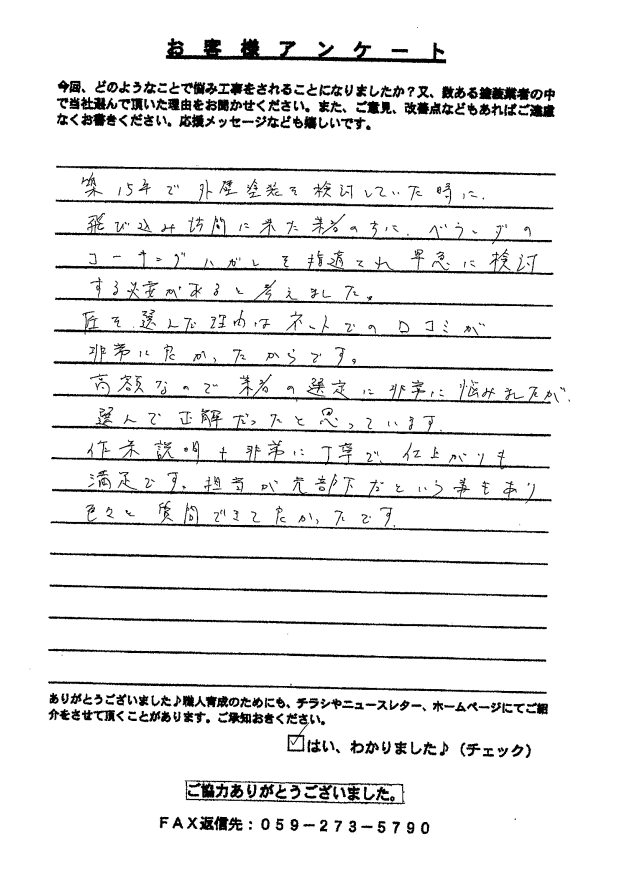 お客様アンケート
今回、どのようなことで悩み工事をされることになりましたか？又、数ある塗装業者の中
で当社選んで頂いた理由をお聞かせください。また、ご意見、改善点などもあればご遠慮
なくお書きください。応援メッセージなども嬉しいです。
築15年で外壁塗装を検討していた時に、
飛び込み訪問に来た業者のちに、ベランダの
コーキングハガレを指適され早急に検討
する必要があると考えました。
匠を選んだ理由はネットでの口コミが
非常に良かったからです。
高額なので業者の選定に非常に悩みましたが、
選んで正解だったと思っています。
作業説明も非常に丁寧で、仕上がりも
満足です。担当が元部下だという事もあり
色々と質問できてよかったです。
ありがとうございました♪職人育成のためにも、チラシやニュースレター、ホームページにてご紹
介をさせて頂くことがあります。ご承知おきください。
☑はい、わかりました♪（チェック）
ご協力ありがとうございました。
FAX返信先：059－273－5790